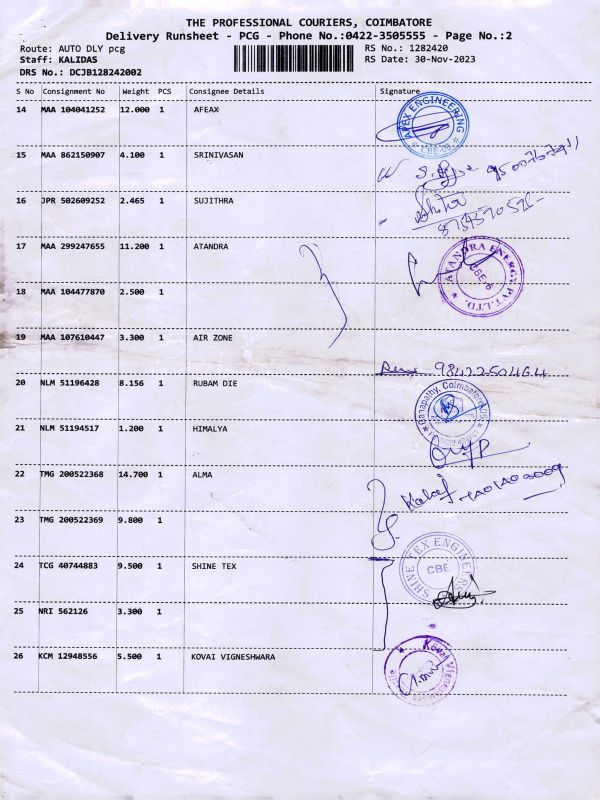 THE PROFESSIONAL COURIERS, COIMBATORE
Delivery Runsheet - PCG - Phone No.:0422-3505555 - Page No.:2
Route: AUTO DLY pcg RS No.: 1282420
Staff: KALIDAS RS Date: 30-Nov-2023
DRS No.: DCJB128242002
S No Consignment No Weight PCS Consignee Details Signature
14 MAA 104041252 12.000 1 AFEAX
APEX ENGINEERING
CBE-06
15 MAA 862150907 4.100 1 SRINIVASAN
16 JPR 502609252 2.465 1 SUJITHRA
17 MAA 299247655 11.200 1 ATANDRA
ATANDRA ENERGY PVT.LTD.
CBE-6
18 MAA 104477870 2.500 1
19 MAA 107610447 3.300 1 AIR ZONE
20 NLM 51196428 8.156 1 RUBAM DIE
Ganapathy, Coimbatore
21 NLM 51194517 1.200 1 HIMALYA
22 TMG 200522368 14.700 1 ALMA
23 TMG 200522369 9.800 1
24 TCG 40744883 9.500 1 SHINE TEX
SHINE TEX ENGINEERS
CBE
25 NRI 562126 3.300 1
26 KCM 12948556 5.500 1 KOVAI VIGNESHWARA
Kovai